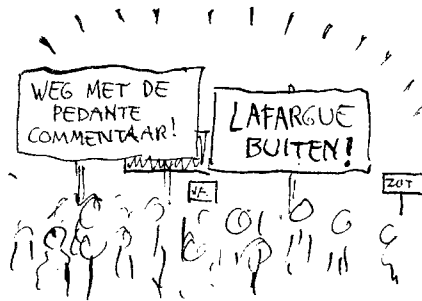 WEG MET DE
PEDANTE
COMMENTAAR!
LAFARGUE
BUITEN!
ZOT